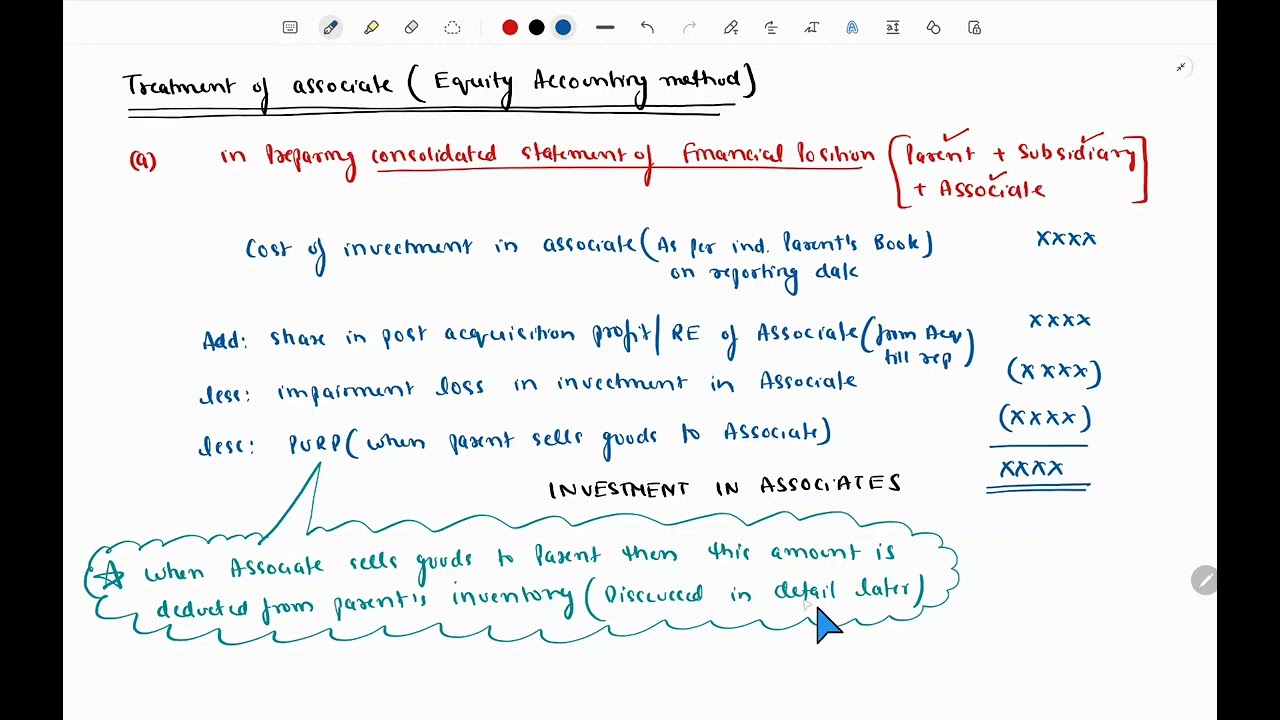 Treatment of associate (Equity Accounting method)
(a) in preparing consolidated statement of Financial Position [Parent + Subsidiary
+ Associate]
Cost of investment in associate (As per ind. Parent's Book) XXXX
on reporting date
Add: share in post acquisition profit/RE of Associate (from Acq XXXX
till rep)
less: impairment loss in investment in Associate (XXXX)
less: PURP (when parent sells goods to Associate) (XXXX)
INVESTMENT IN ASSOCIATES XXXX
☆ when Associate sells goods to Parent then this amount is
deducted from parent's inventory (Discussed in detail later)